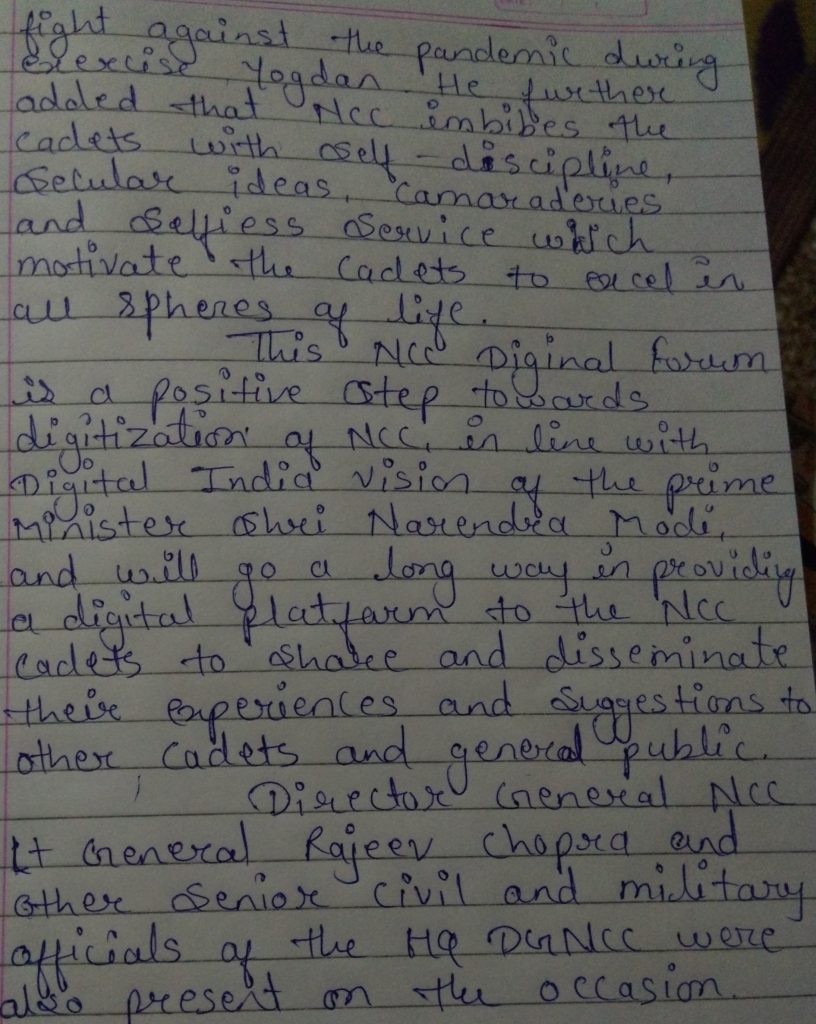 fight against the pandemic during
exercise Yogdan. He further
added that NCC imbibes the
cadets with self-discipline,
secular ideas, camaraderies
and selfiess service which
motivate the cadets to excel in
all spheres of life.
This NCC Diginal forum
is a positive step towards
digitization of NCC, in line with
Digital India vision of the prime
Minister Shri Narendra Modi,
and will go a long way in providing
a digital platfarm to the NCC
cadets to share and disseminate
their experiences and suggestions to
other cadets and general public.
Director General NCC
Lt General Rajeev Chopra and
other senior civil and military
officials of the HQ DGNCC were
also present on the occasion.